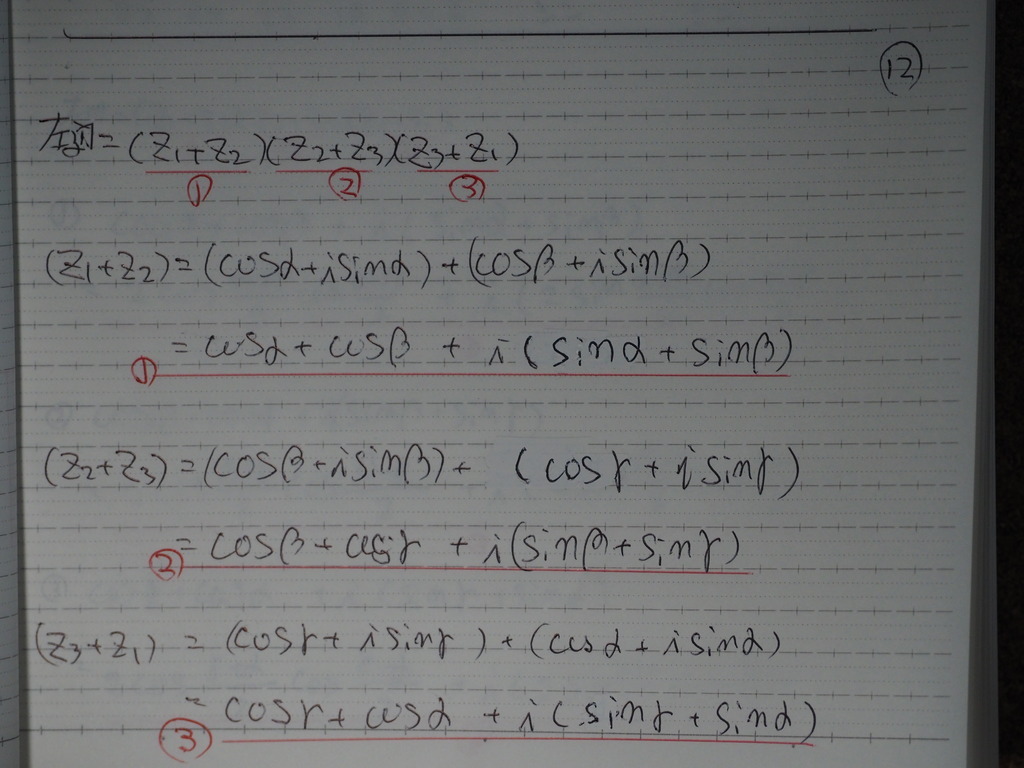 ⑫
左辺=(Z₁+Z₂)(Z₂+Z₃)(Z₃+Z₁)
① ② ③
(Z₁+Z₂)=(cosα+isinα)+(cosβ+isinβ)
①=cosα+cosβ + i(sinα+sinβ)
(Z₂+Z₃)=(cosβ+isinβ)+ (cosγ+isinγ)
②=cosβ+cosγ + i(sinβ+sinγ)
(Z₃+Z₁) = (cosγ+isinγ)+(cosα+isinα)
③=cosγ+cosα + i(sinγ+sinα)